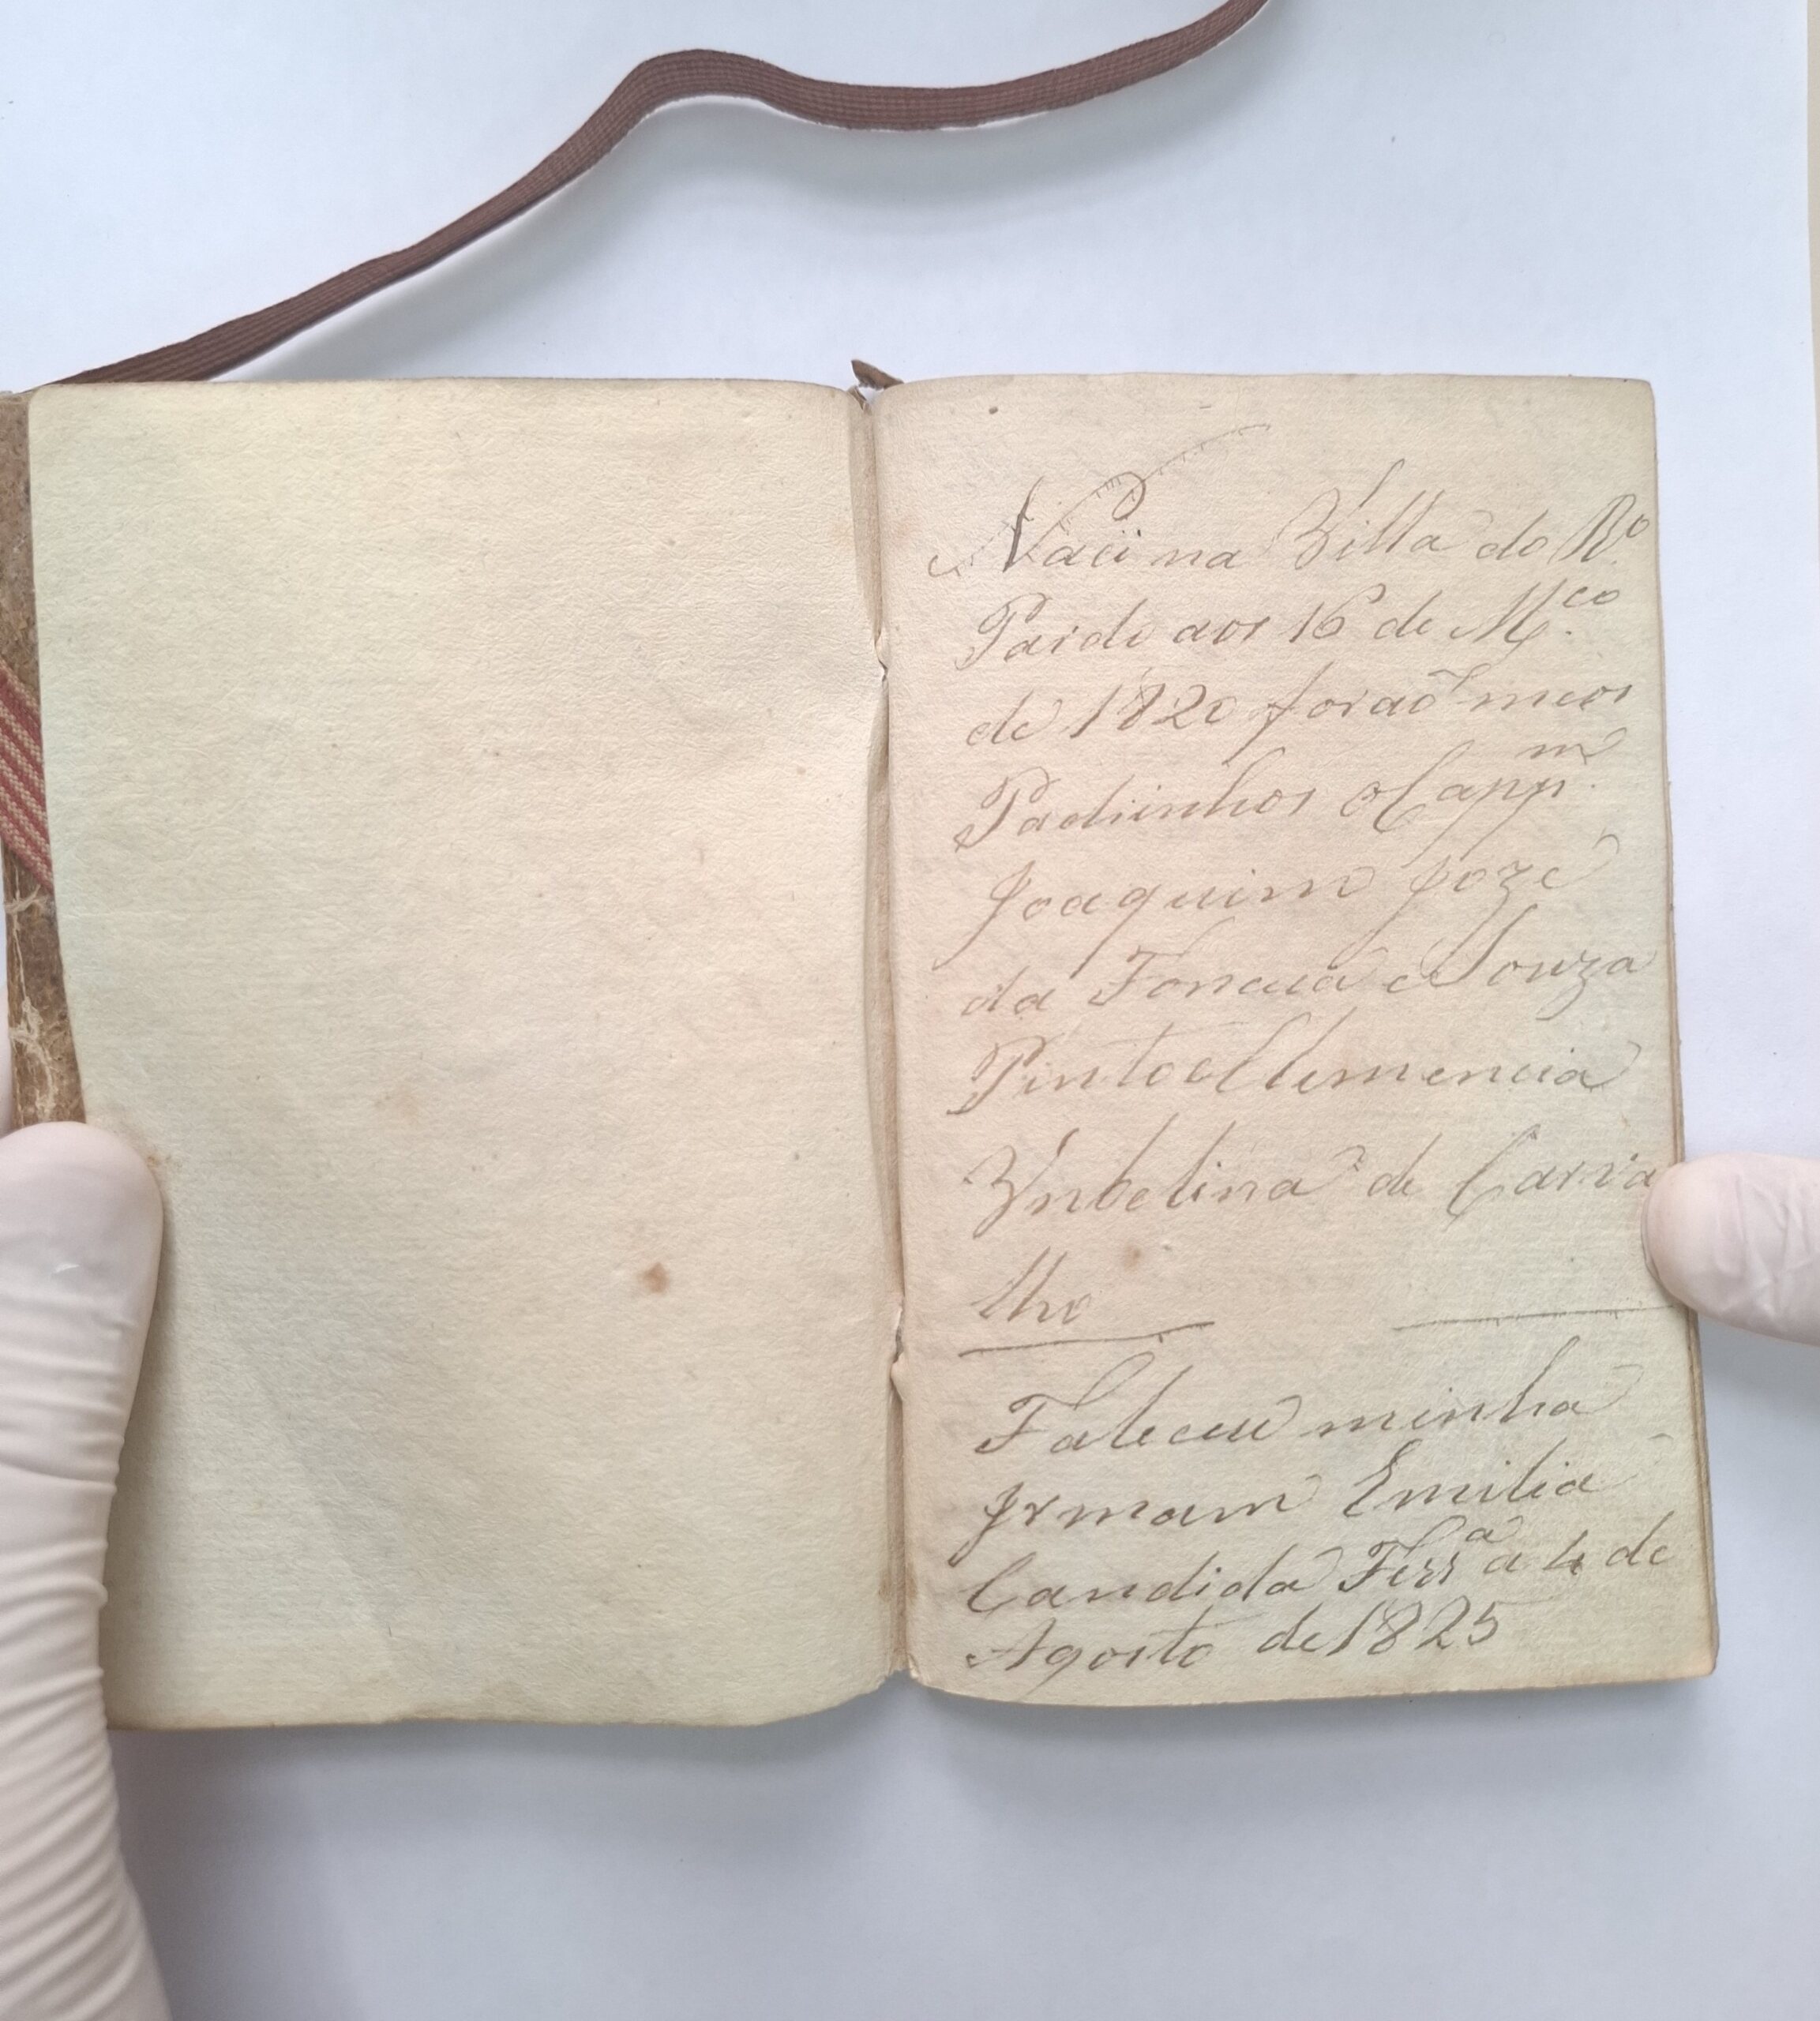 Naci na Villa do Ro
Pardo aos 16 de Mco.
de 1820 forão meos
Padrinhos o Cappm.
Joaquim Jozé
da Fonceca e Souza
Pinto e Clemencia
Vnbelina de Carva
lho
Faleceu minha
Irmam Emilia
Candida Ferra a 4 de
Agosto de 1825